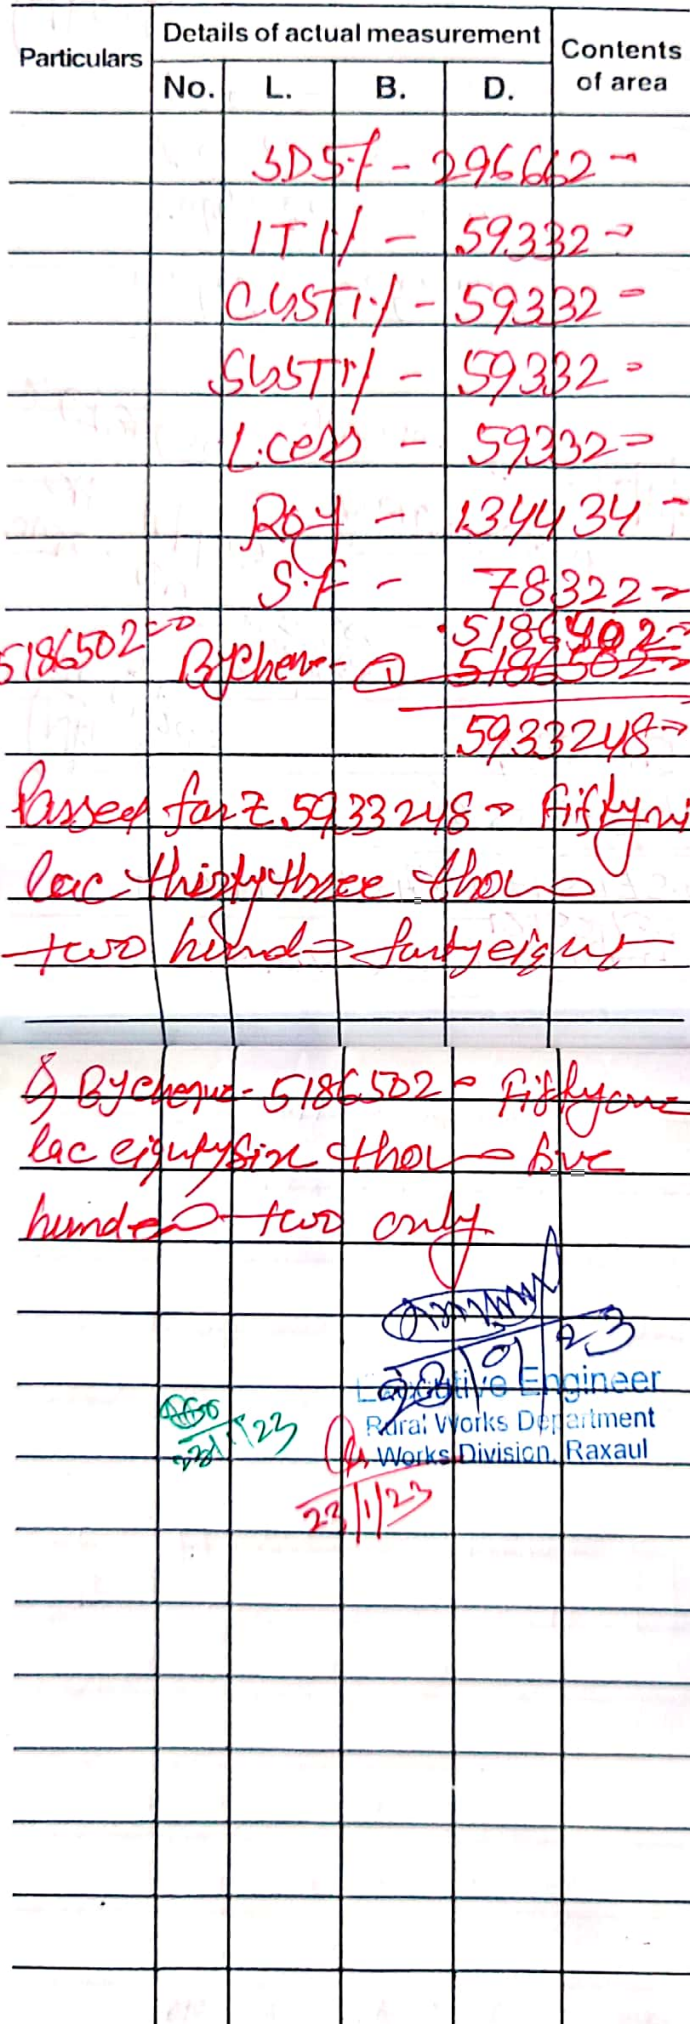 Particulars Details of actual measurement Contents of area
No. L. B. D.
SD 5% - 296662=
IT 1% - 59332=
CGST 1% - 59332=
SGST 1% - 59332=
L.cess - 59332=
Roy - 134434=
S.F - 78322=
5186502=
5186502=00 By Cheque - 5186502=
5933248=
Passed for ₹ 5933248= Fifty ni
lac thirty three thou
two hund= forty eight
By cheque - 5186502= Fifty one
lac eighty six thou five
hundred two only
23/01/23
Executive Engineer
Rural Works Department
Works Division, Raxaul
23/1/23
23/1/23